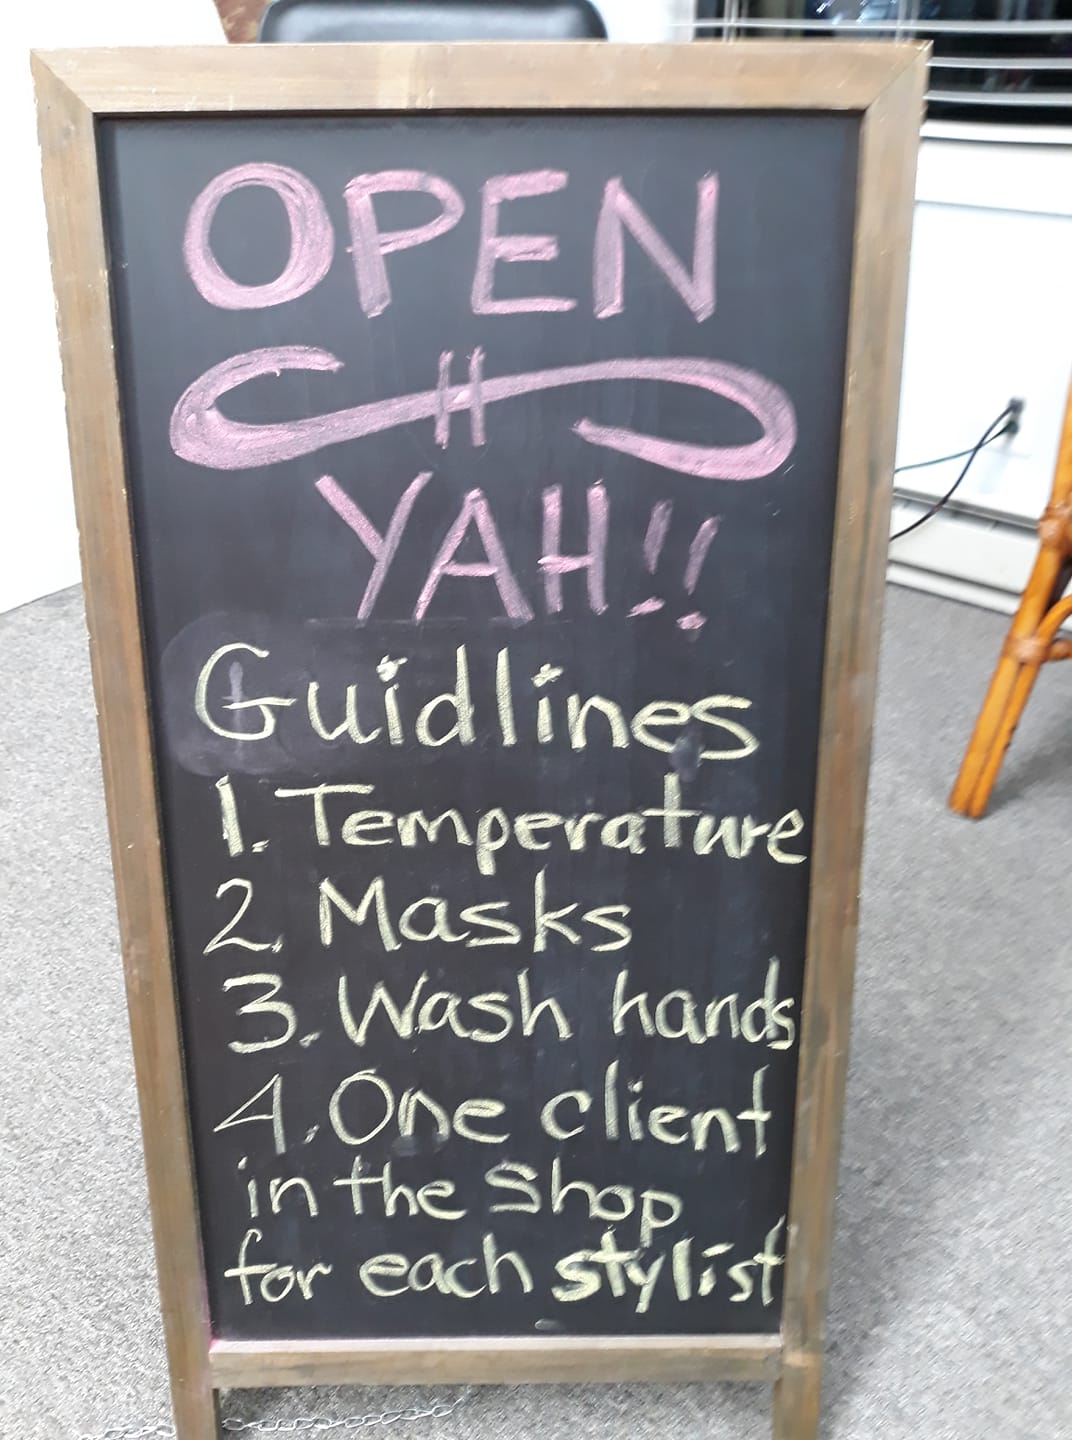 OPEN
YAH!!
Guidlines
1. Temperature
2. Masks
3. Wash hands
4. One client
in the shop
for each stylist